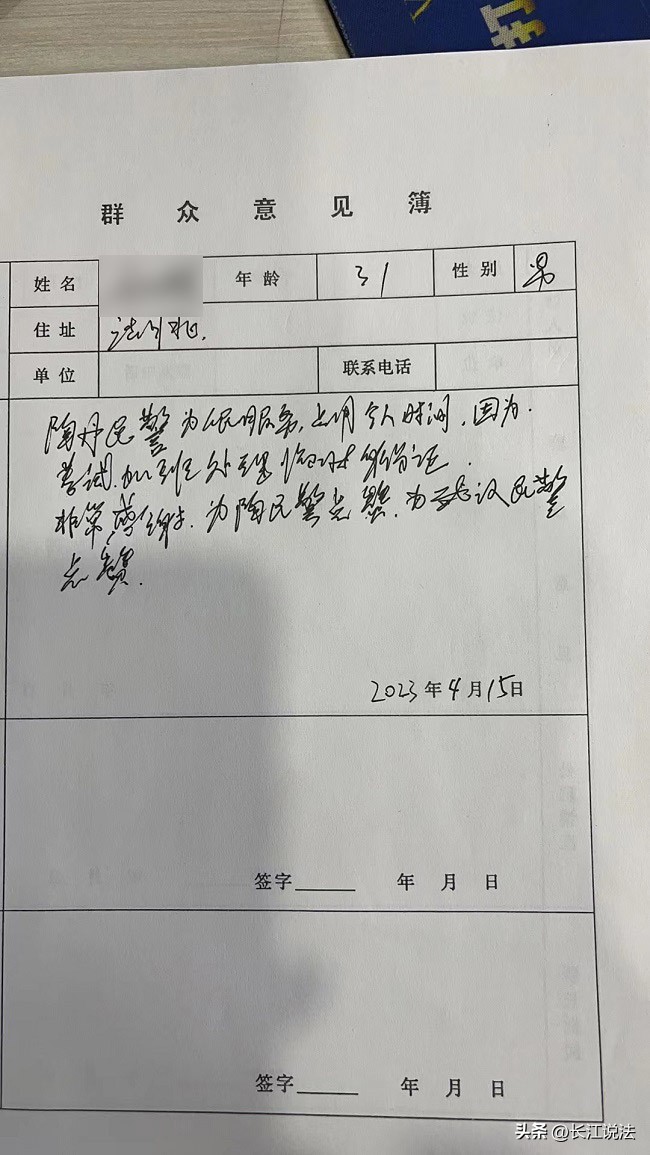 群众意见簿
姓名 年龄 31 性别 男
住址
单位 联系电话
陶丹民警为人民服务,占用个人时间,因为
考试,加班处理临时身份证.
非常感谢,为陶民警点赞,为武汉民警
点赞.
2023年4月15日
签字 年 月 日
签字 年 月 日
头条 @长江说法